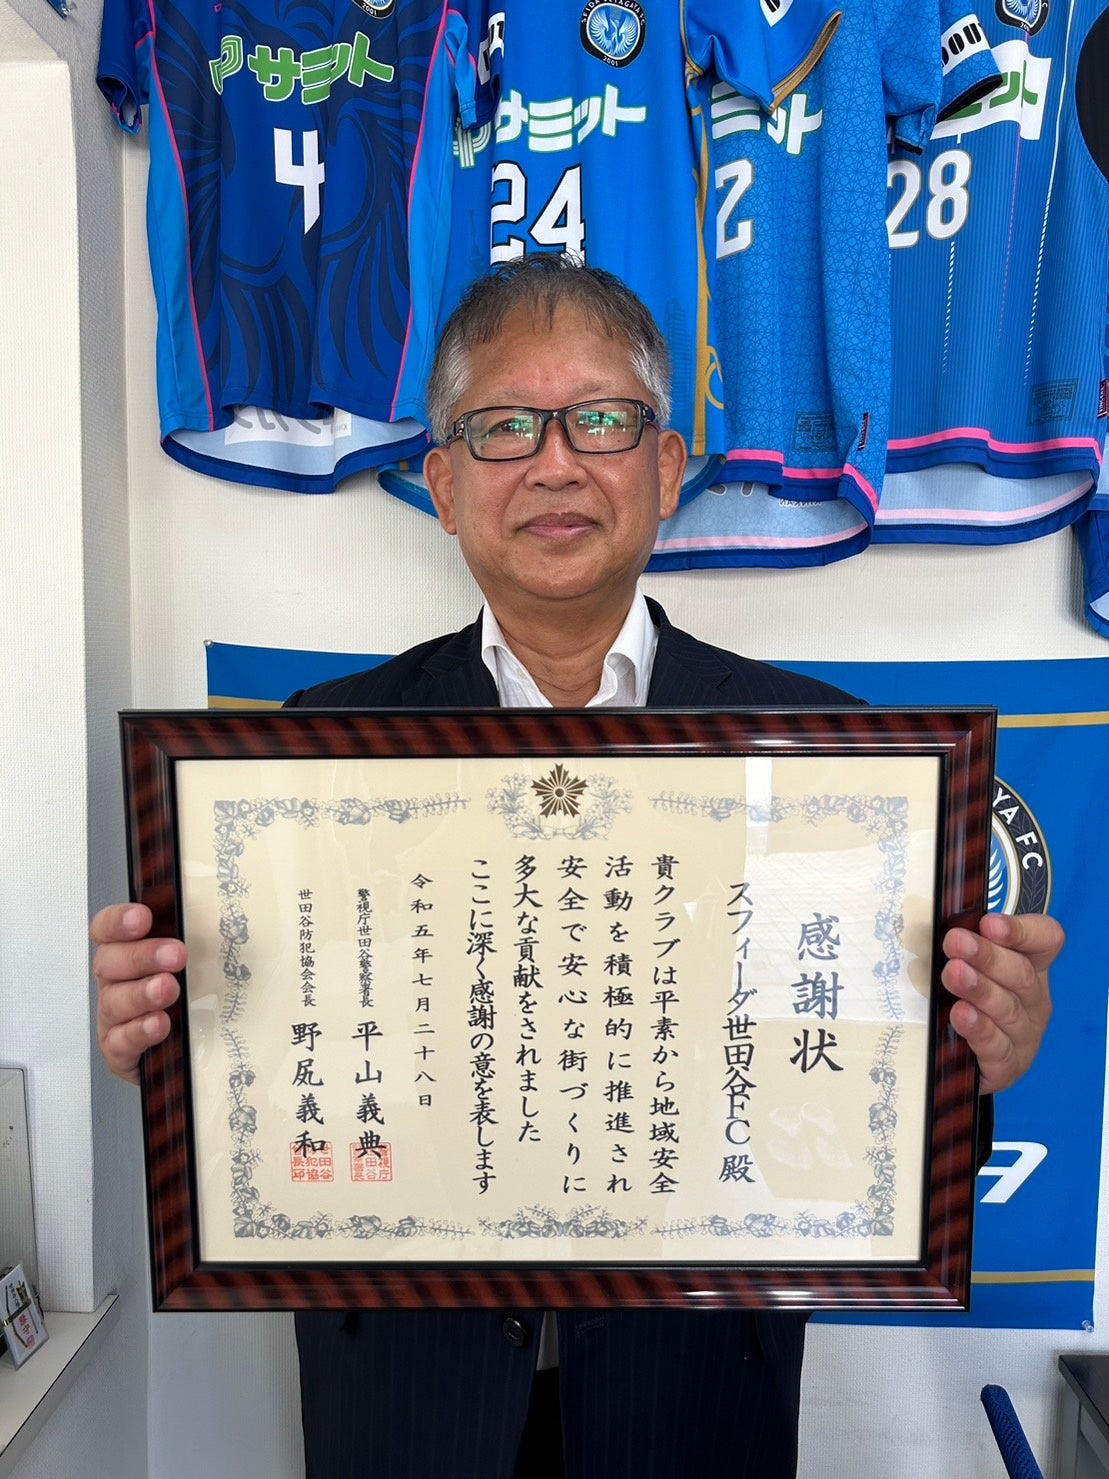 サミット
4
サミット
24
ミット
2
28
2001
2001
感謝状
スフィーダ世田谷FC 殿
貴クラブは平素から地域安全
活動を積極的に推進され
安全で安心な街づくりに
多大な貢献をされました
ここに深く感謝の意を表します
令和五年七月二十八日
警視庁世田谷警察署長 平山義典
世田谷防犯協会会長 野尻義和
YA FC